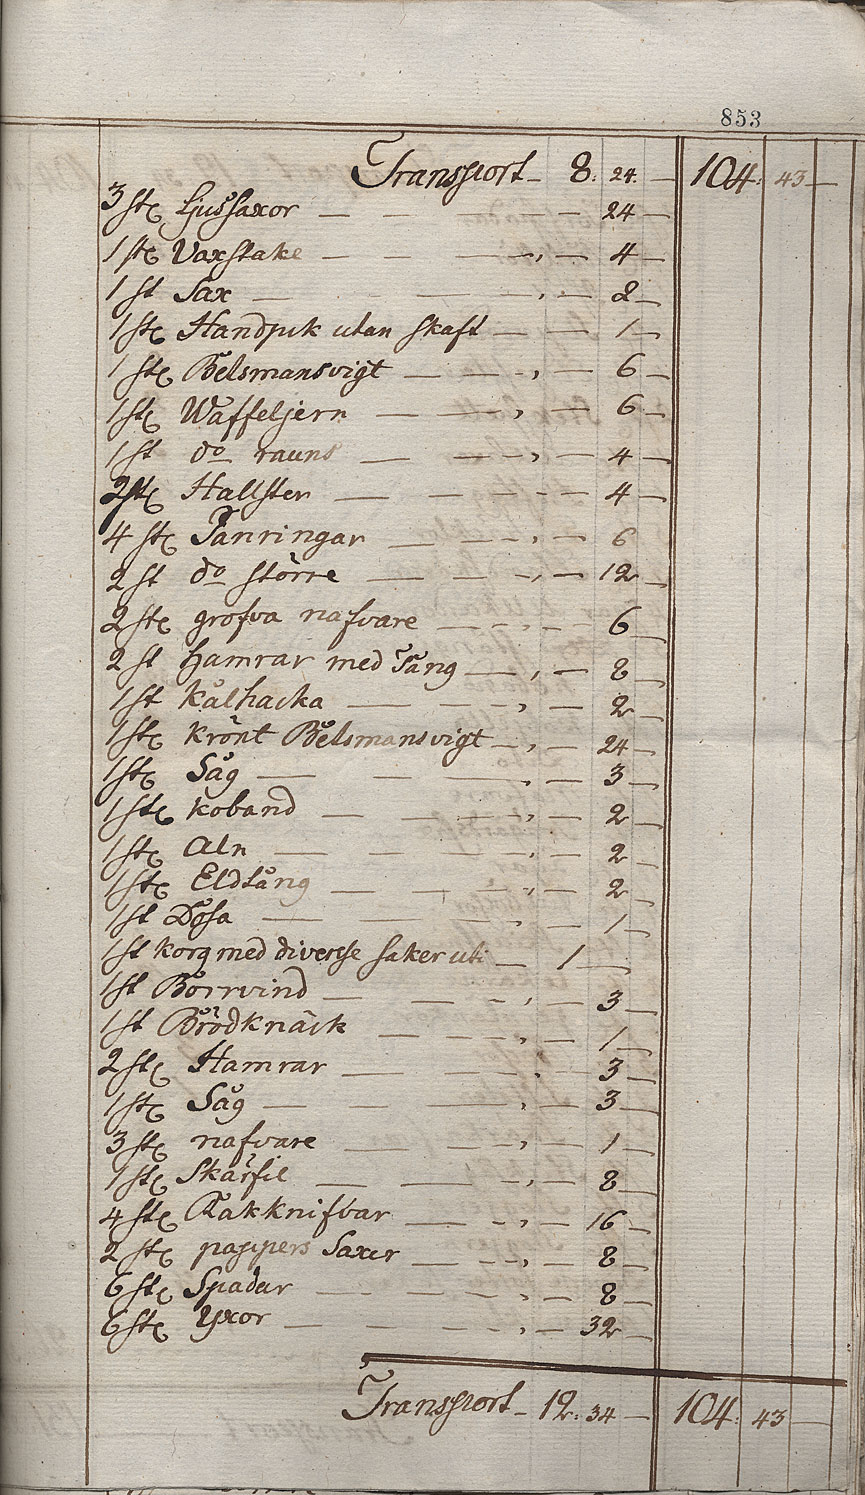 853
Transport - 8: 24. - 104: 43 -
3 stc Ljussaxor - - - - 24 -
1 stc Vaxstake - - - , - 4 -
1 st Sax - - - , - 2 -
1 stc Handpik utan skaft - - 1 -
1 stc Betsmansvigt - - , - 6 -
1 stc Waffeljern - - , - 6 -
1 st do rauns - - , - 4 -
2 stc Hallster - - - - 4 -
4 stc Tanringar - - , - 6 -
2 st do större - - , - 12 -
2 stc grofva nafvare - - , - 6 -
2 st hamrar med Tång - , - 8 -
1 st kålhacka - - , - 2 -
1 stc krönt Betsmansvigt - , - 24 -
1 stc Såg - - - , - 3 -
1 stc koband - - - , - 2 -
1 stc Aln - - - , - 2 -
1 stc Eldtång - - - , - 2 -
1 st Dosa - - - , - 1 -
1 st korg med diverse saker uti - 1 - -
1 st Borrvind - - - , - 3 -
1 st Brödknäck - - - , - 1 -
2 stc Hamrar - - - , - 3 -
1 stc Såg - - - , - 3 -
3 stc nafvare - - - , - 1 -
1 stc Skärfil - - - , - 8 -
4 stc Rakknifvar - - , - 16 -
2 stc pappers Saxer - - , - 8 -
6 stc Spadar - - - , - 8 -
6 stc Yxor - - - , - 32 -
Transport - 12: 34 - 104: 43 -